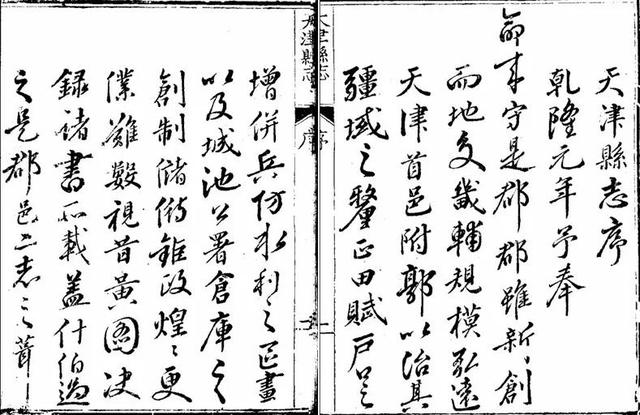 天津縣志序
乾隆元年予奉
命来守是郡郡雖新創
而地交畿輔規模弘遠
天津首邑附郭以治其
疆域之釐正田賦戶口之
天津縣志
序
一
天津縣志
序
增併兵防水利之區畫
以及城池公署倉庫之
創制儲偫鉅政煌々更
僕難數視昔黃圖决
録諸書所載蓋什伯過
之是郡邑二志之葺